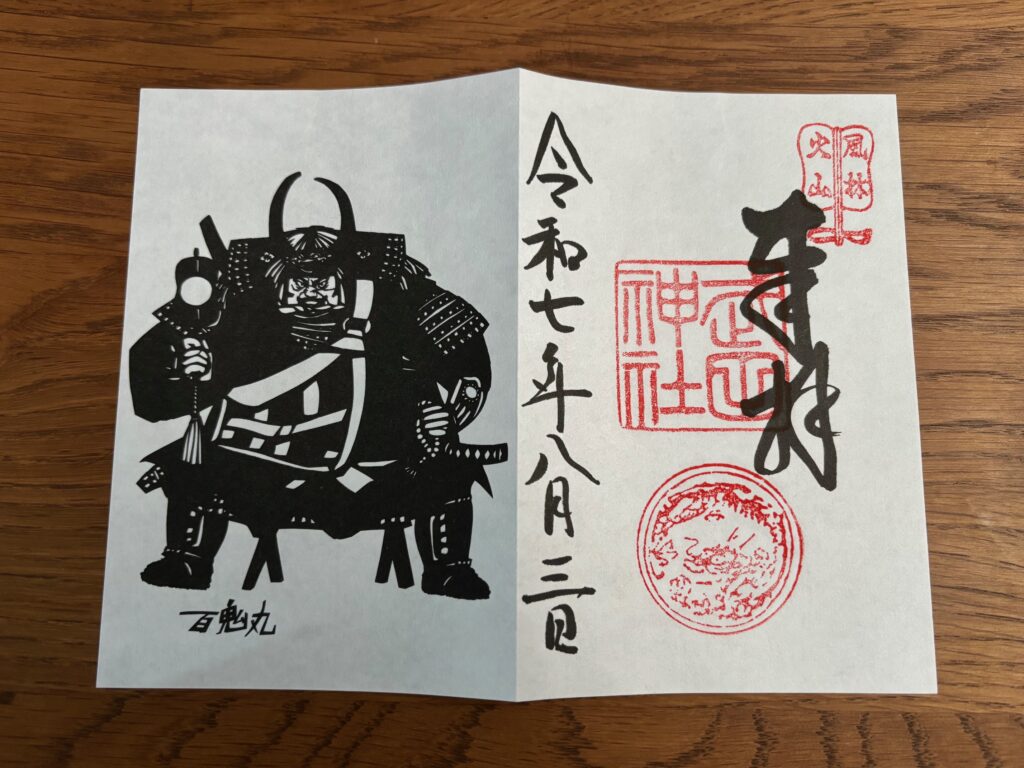 風林
火山
奉拝
武田
神社
令和七年八月三日
百鬼丸